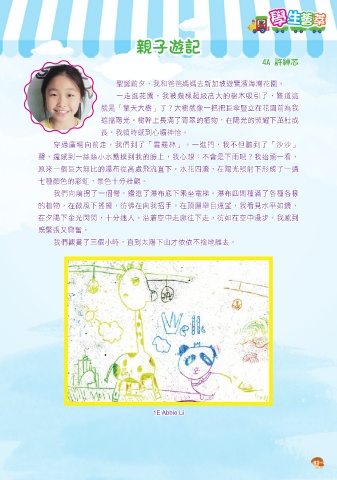 學生薈萃
親子遊記
4A 許綽芯
聖誕前夕，我和爸爸媽媽去新加坡遊覽濱海灣花園。
一走進花園，我被幾棵超級高大的樹木吸引了，難道這
就是「擎天大樹」了？大樹就像一把把巨傘豎立在花園前為我
遮擋陽光，樹幹上長滿了青翠的植物，在陽光的照耀下茁壯成
長，我頓時感到心曠神怡。
穿過廣場向前走，我們到了「雲霧林」。一進門，我不但聽到了「沙沙」
聲，還感到一絲絲小水點撲到我的臉上，我心想：不會是下雨吧？我抬頭一看，
原來一個巨大無比的瀑布從高處飛流直下，水花四濺，在陽光照射下形成了一道
七種顏色的彩虹，景色十分壯觀。
我們向前拐了一個彎，繞過了瀑布底下乘坐電梯。瀑布四周種滿了各種各樣
的植物，在微風下搖擺，彷彿在向我招手。在頂層舉目遠望，我看見水平如鏡，
在夕陽下金光閃閃，十分迷人。沿着空中走廊往下走，彷如在空中漫步，我感到
既緊張又興奮。
我們觀賞了三個小時，直到太陽下山才依依不捨地離去。
1E Abbie Li